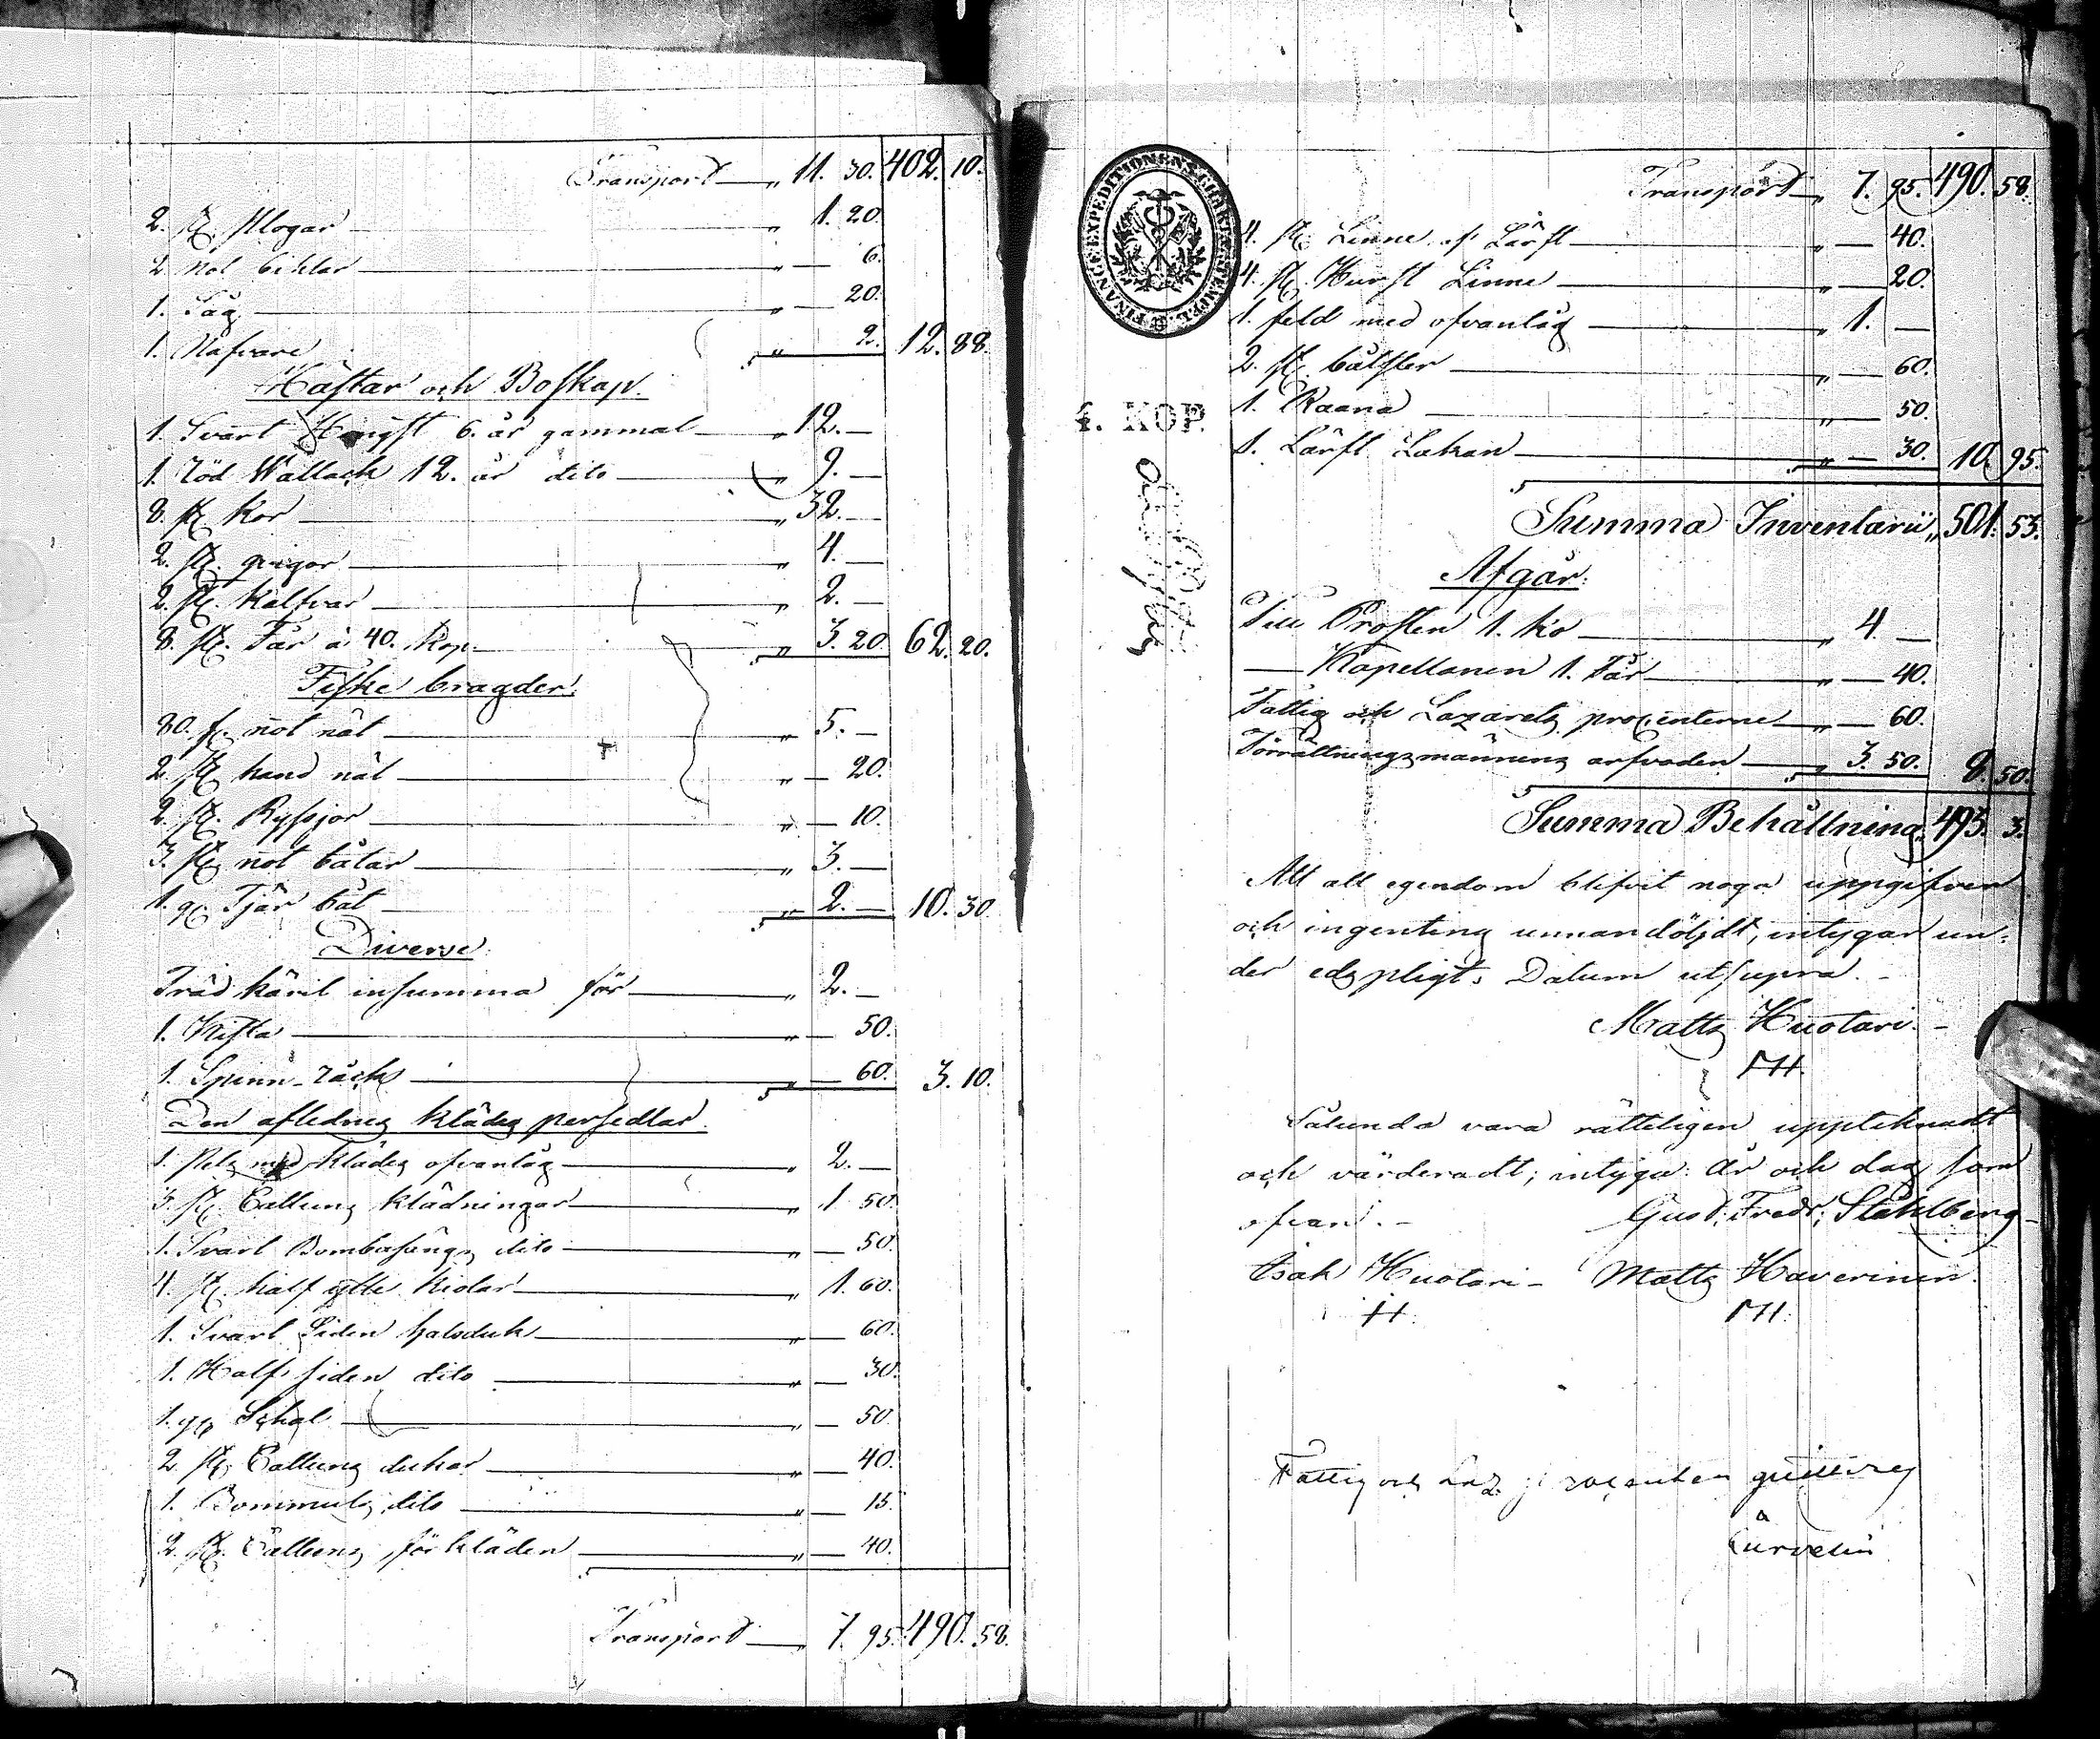 Transport — „ 11. 30. 402. 10.
2. st. plogar — „ 1. 20.
2. not bihlar — „ — 6.
1. Såg — „ — 20.
1. Nafvare „ 2. 12. 88.
Hästar och Boskap.
1. Svart Hingst 6. år gammal — „ 12. —
1. röd Wallack 12. år dito — „ 9. —
8. st. kor — „ 32. —
2. st. qvigor — „ 4. —
2. st. kalfvar — „ 2. —
8. st. Får à 40. kop — „ 3. 20. 62. 20.
Fiske bragder.
80. f. not nät — „ 5. —
2. st. hand nät — „ — 20.
2. st. Ryssjor — „ — 10.
3. st. not båtar — „ 3. —
1. g. Tjär båt — „ 2. — 10. 30.
Diverse
Träd käril insumma för — „ 2. —
1. Kista — „ — 50.
1. Spinn-räck — „ — 60. 3. 10.
Den aflednes klädes persedlar.
1. Pels med klädes ofvanlag — „ 2. —
3. st. Cattuns klädningar — „ 1 50.
1. Svart Bombasängs dito — „ — 50.
4. st. half ylle kiolar — „ 1. 60.
1. Svart Siden halsduk — „ — 60.
1. Half siden dito — „ — 30.
1. gl. Schal — „ — 50.
2. st. Cattuns dukar — „ — 40.
1. Bommuls dito — „ — 15.
2. st. Cattuns förkläden — „ — 40.
Transport — „ 7. 95. 490. 58.
FINANCE EXPEDITIONENS CHARTÆ STEMPEL
4. KOP.
Transport — „ 7. 95. 490. 58.
4. st. Linne af Lärft — „ — 40.
4. st. Hurst Linne — „ — 20.
1. feld med ofvanlag — „ 1. —
2. st. bålster — „ — 60.
1. Raana — „ — 50.
1. Lärft Lakan — „ — 30. 10. 95.
Summa Inventarii „ 501. 53.
Afgår.
Till Prosten 1. ko — „ 4 —
— Kapellanen 1. Får — „ — 40.
Fattig och Lazarets procenterne — „ — 60.
Förrättningsmännens arfvoden — „ 3. 50. 8. 50.
Summa Behållning „ 493. 3.
Att all egendom blifvit noga uppgifven
och ingenting unnandöljdt, intygar un-
der eds pligt. Datum utsupra. -
Matts Huotari. -
MH.
Sålunda vara rätteligen uppteknadt
och värderadt; intyga: År och dag som
ofvan. - Gust. Fredr. Ståhlberg -
Isak Huotari - Matts Haverinen.
H. MH.
Fattig och Laz. procenten